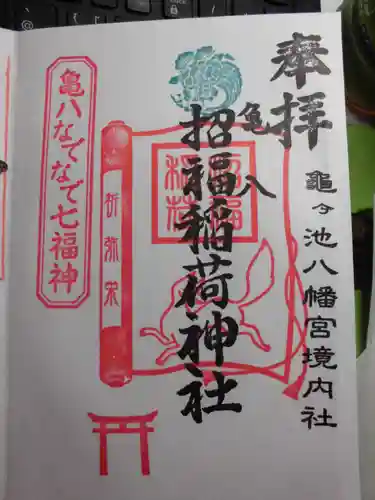 奉拝
亀ヶ池八幡宮境内社
亀八
招福稲荷神社
招福
稲荷
祈弥栄
亀八なでなで七福神